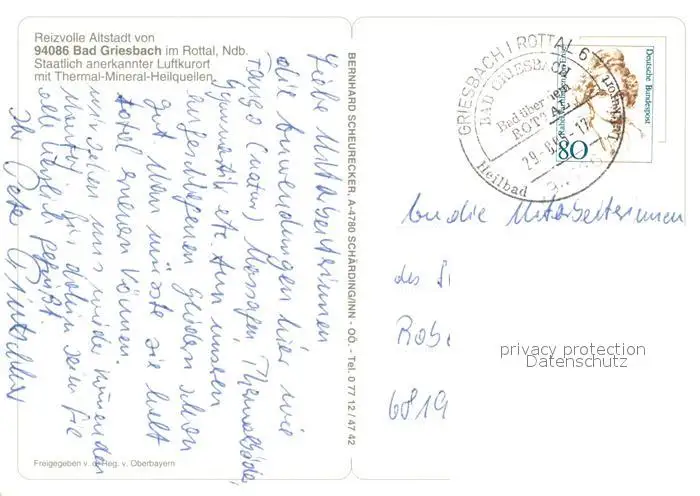 Reizvolle Altstadt von
94086 Bad Griesbach im Rottal, Ndb.
Staatlich anerkannter Luftkurort
mit Thermal-Mineral-Heilquellen
Liebe Mitarbeiterinnen
die Anwendungen hier wie
Fango (Natur) Massagen, Thermalbäder,
Gymnastik etc. tun unseren
angeschlagenen Gliedern schon
gut. Man müsste sie halt
total erneuern können.
wir sehen uns wieder
Montag bis dahin seien Sie
alle herzlich gegrüßt.
Ihr Peter
Freigegeben v. d. Reg. v. Oberbayern
BERNHARD SCHEURECKER, A-4780 SCHÄRDING/INN - OÖ. - Tel. 0 77 12 / 47 42
GRIESBACH I ROTTAL 6
BAD GRIESBACH
Bad über dem
ROTTAL
29.-8.95-17
Heilbad
Deutsche Bundespost
80
An die Mitarbeiterinnen
des
Robe
6819
privacy protection
Datenschutz